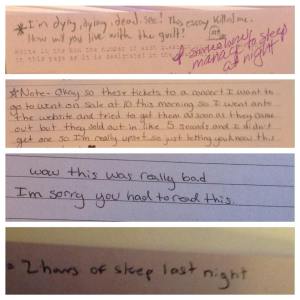 *I'm dying, dying, dead. See! This essay killed me.
How will you live with the guilt!
- somehow I
manage to sleep
at night
*Note- Okay so these tickets to a concert I want to
go to went on sale at 10 this morning so I went onto
the website and tried to get them as soon as they came
out but they sold out in like 5 seconds and I didn't
get one so I'm really upset. so just letting you know this
wow this was really bad
I'm sorry you had to read this.
2 hours of sleep last night